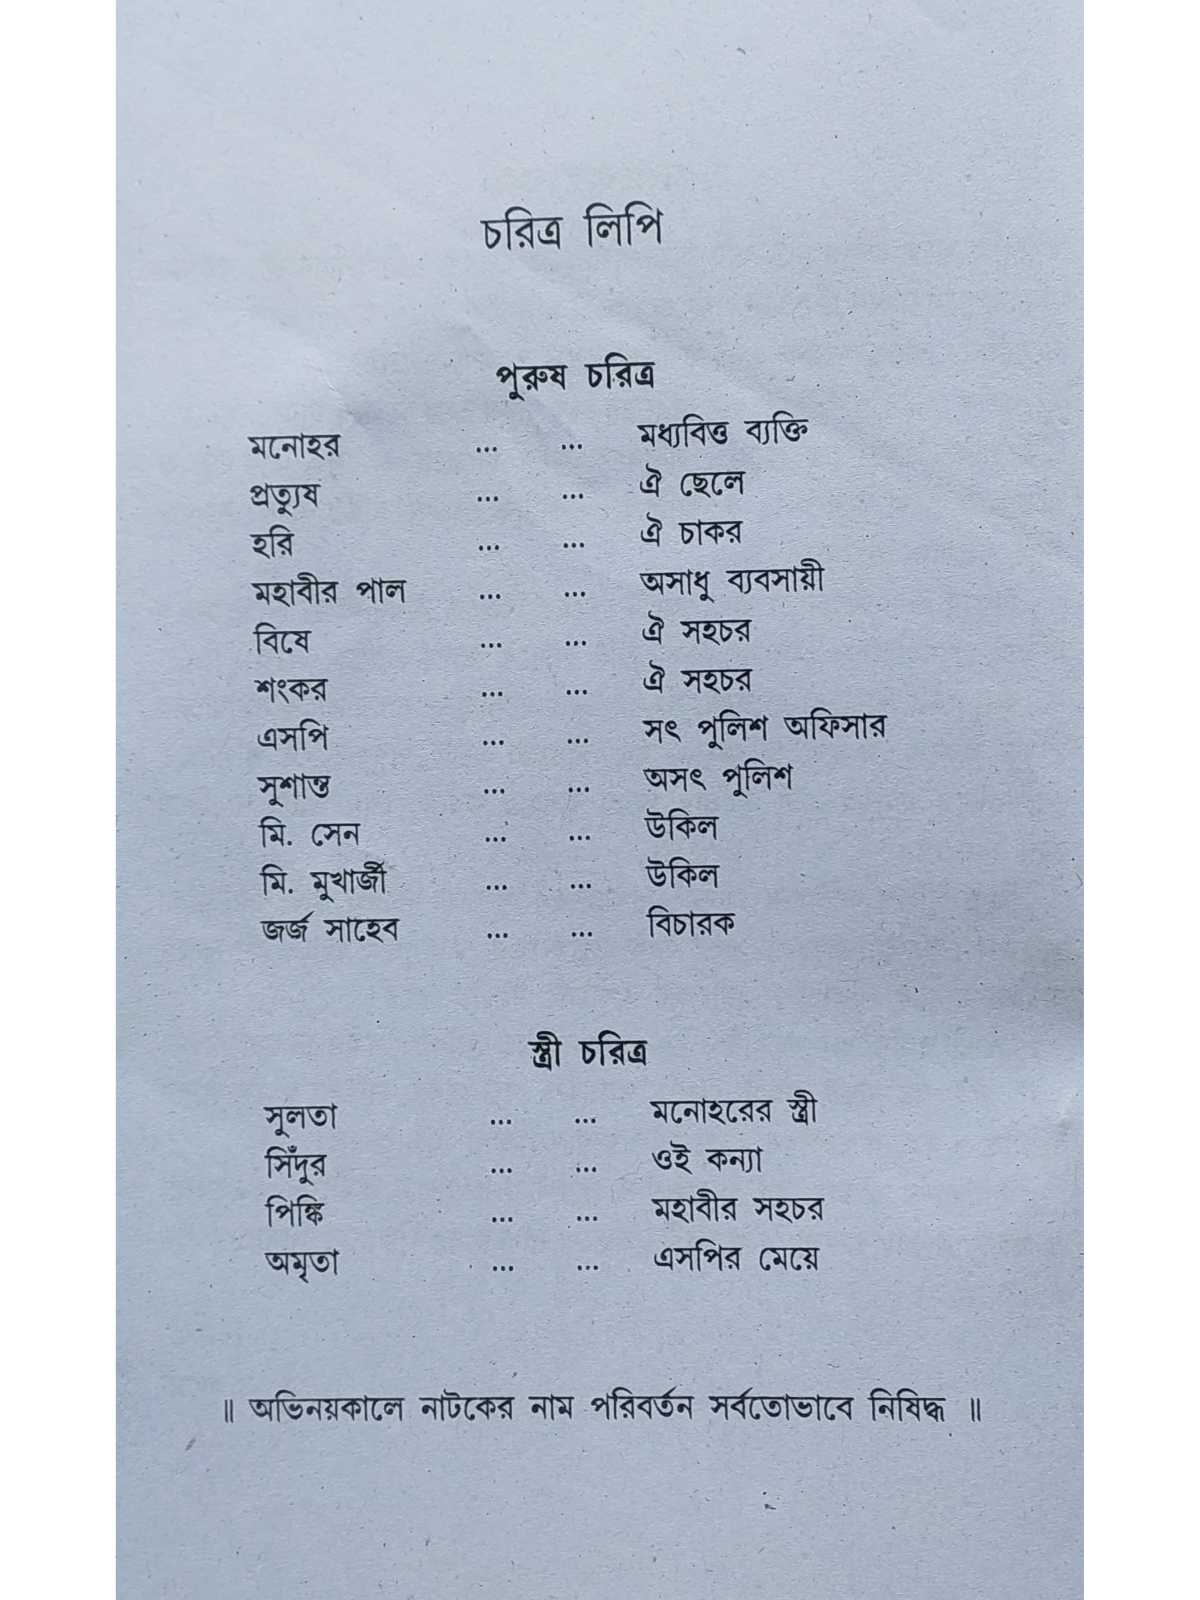 চরিত্র লিপি
পুরুষ চরিত্র
মনোহর ... ... মধ্যবিত্ত ব্যক্তি
প্রত্যুষ ... ... ঐ ছেলে
হরি ... ... ঐ চাকর
মহাবীর পাল ... ... অসাধু ব্যবসায়ী
বিষে ... ... ঐ সহচর
শংকর ... ... ঐ সহচর
এসপি ... ... সৎ পুলিশ অফিসার
সুশান্ত ... ... অসৎ পুলিশ
মি. সেন ... ... উকিল
মি. মুখার্জী ... ... উকিল
জর্জ সাহেব ... ... বিচারক
স্ত্রী চরিত্র
সুলতা ... ... মনোহরের স্ত্রী
সিঁদুর ... ... ওই কন্যা
পিঙ্কি ... ... মহাবীর সহচর
অমৃতা ... ... এসপির মেয়ে
॥ অভিনয়কালে নাটকের নাম পরিবর্তন সর্বতোভাবে নিষিদ্ধ ॥